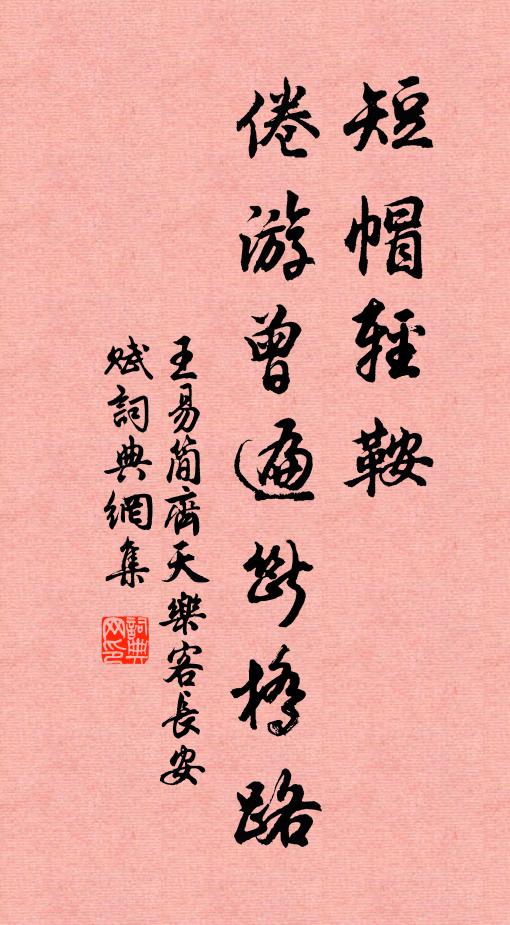 短帽輕鞍
倦游曾遍斷橋路
王易簡齊天樂客長安
賦詞典網集
詞典网印